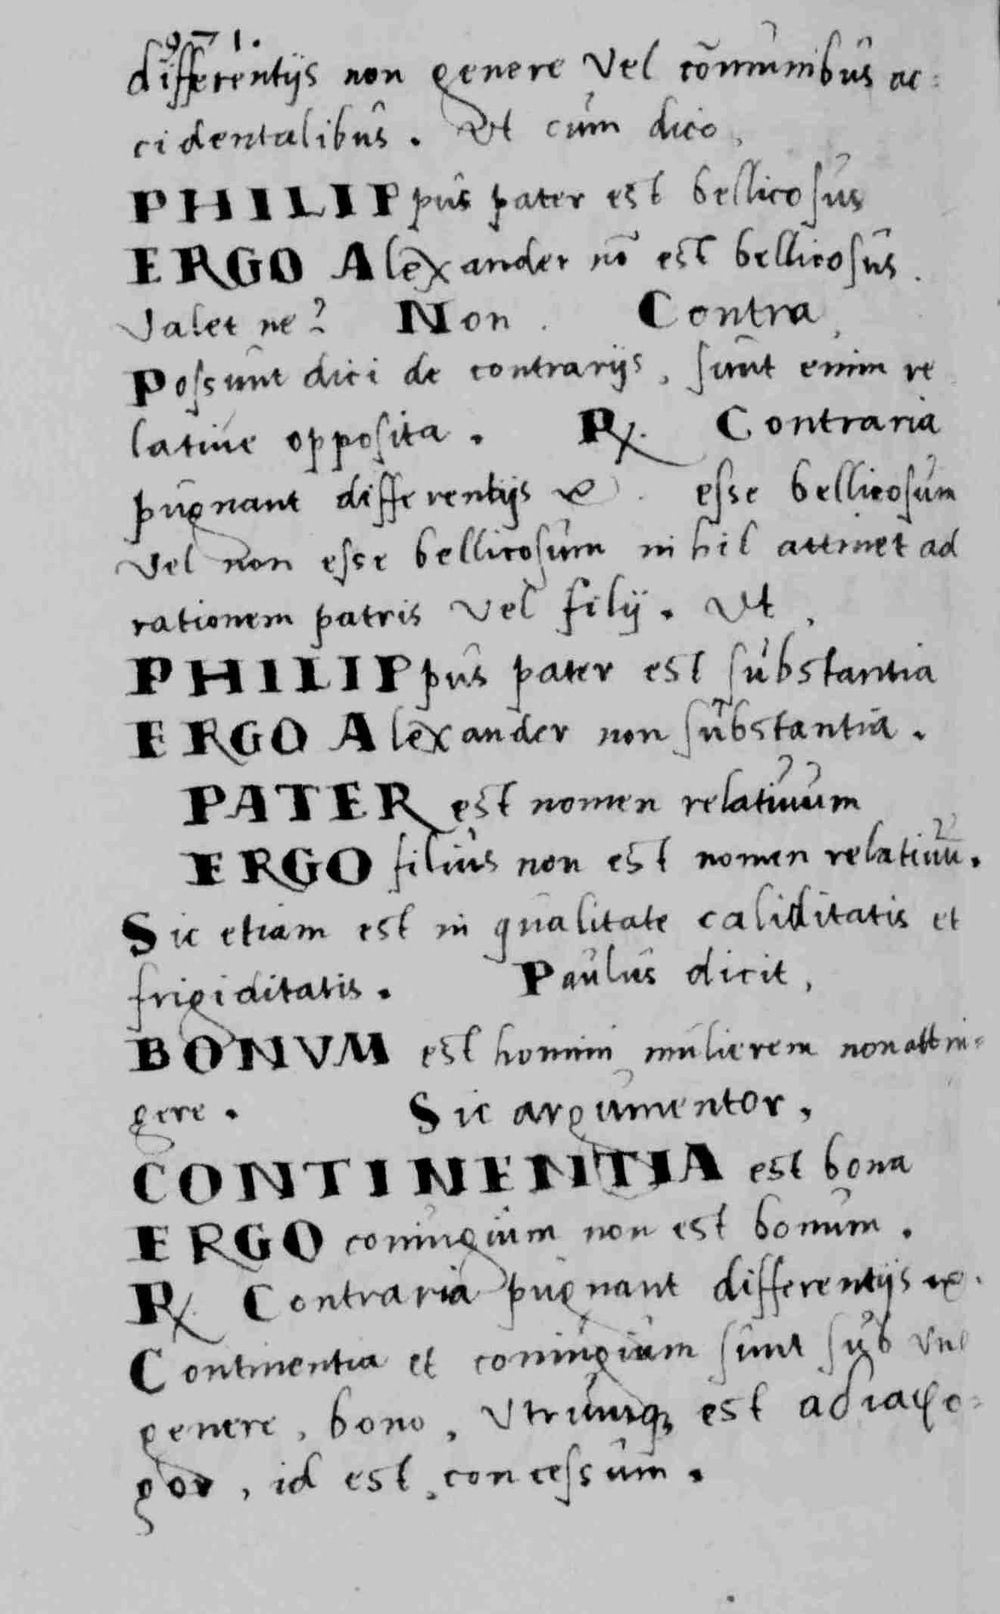 differentijs non genere vel cōmunibus ac:
cidentalibus. Ut cum dico,
PHILIPpus pater est bellicosus
ERGO Alexander nō est bellicosus.
Valet ne? Non. Contra,
Possunt dici de contrarijs, sunt enim re
latiue opposita. R. Contraria
pugnant differentijs &. esse bellicosum
vel non esse bellicosum nihil attinet ad
rationem patris vel filij. Ut,
PHILIPpus pater est substantia
ERGO Alexander non substantia.
PATER est nomen relatiuum
ERGO filius non est nomen relatiuū.
Sic etiam est in qualitate caliditatis et
frigiditatis. Paulus dicit,
BONUM est homini mulierem non attin=
gere. Sic argumentor,
CONTINENTIA est bona
ERGO coniugium non est bonum.
R Contraria pugnant differentijs &.
Continentia et coniugium sunt sub vno
genere, bono, Utrunq; est adiaφo=
gor, id est, concessum.